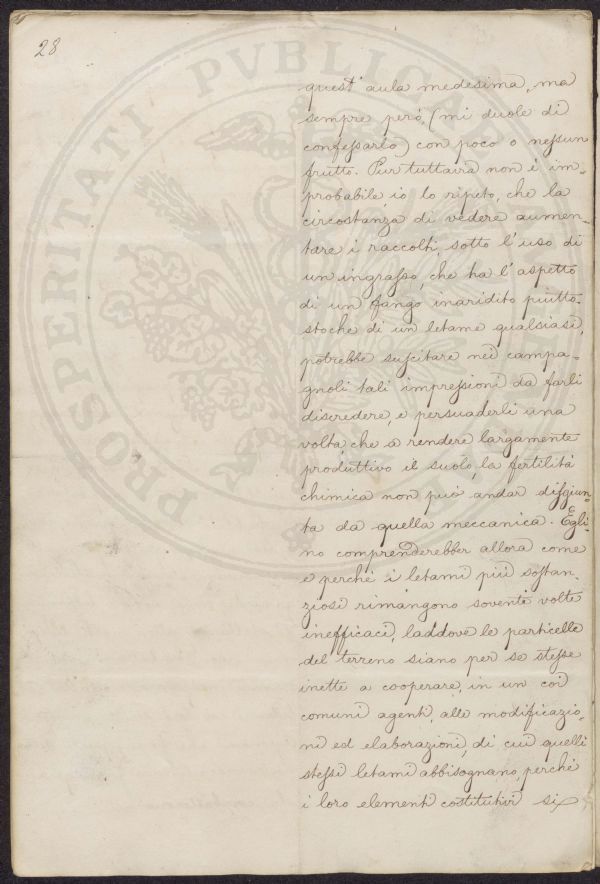 28
quest' aula medesima, ma
sempre però, (mi duole di
confessarlo) con poco o nessun
frutto. Pur tuttavia non è im-
probabile, io lo ripeto, che la
circostanza di vedere aumen-
tare i raccolti, sotto l'uso di
un ingrasso, che ha l'aspetto
di un fango inaridito piutto-
stoche di un letame qualsiasi,
potrebbe suscitare nei campa-
gnoli tali impressioni da farli
discredere, e persuaderli una
volta, che a rendere largamente
produttivo il suolo, la fertilità
chimica non può andar disgiun-
ta da quella meccanica. Egli-
no comprenderebber allora come
e perchè i letami più sostan-
ziosi rimangono sovente volte
inefficaci, laddove le particelle
del terreno siano per se stesse
inette a cooperare, in un coi
comuni agenti, alle modificazio-
ni ed elaborazioni, di cui quelli
stessi letami abbisognano, perchè
i loro elementi costitutivi si
PROSPERITATI PVBLICAE